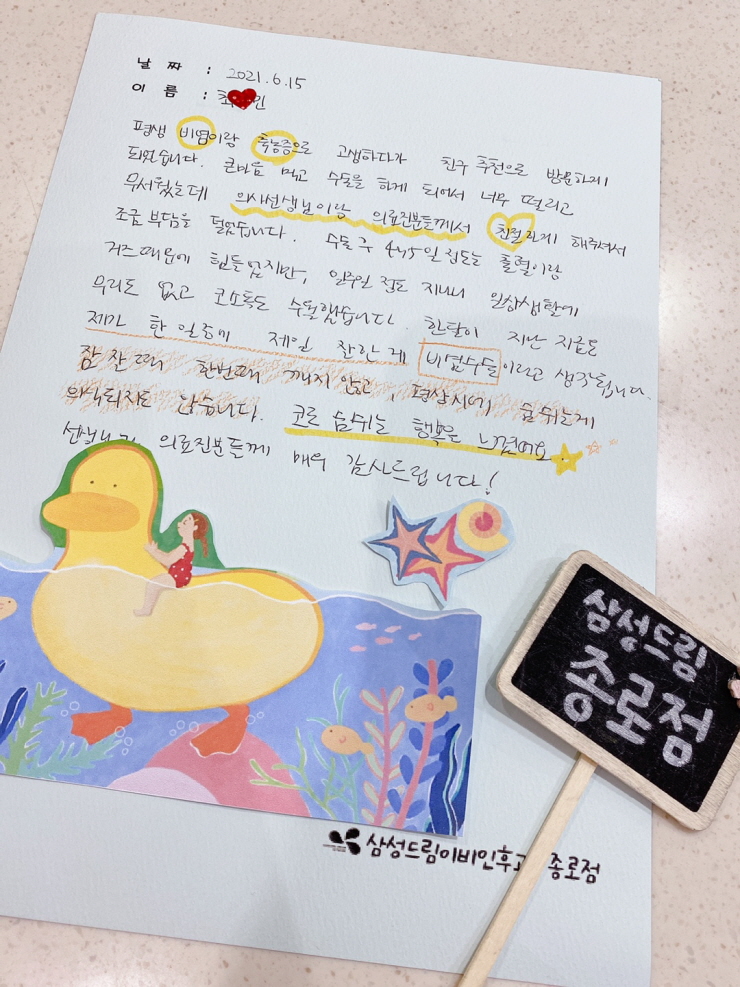 날 짜 : 2021.6.15
이 름 : 최 민
평생 비염이랑 축농증으로 고생하다가 친구 추천으로 방문하게
되었습니다. 큰마음 먹고 수술을 하게 되어서 너무 떨리고
무서웠는데 의사선생님이랑 의료진분들께서 친절하게 해주셔서
조금 부담을 덜었습니다. 수술 후 4,5일 정도는 출혈이랑
거즈때문에 힘들었지만, 일주일 정도 지나니 일상생활에
무리도 없고 코소독도 수월했습니다. 한달이 지난 지금도
제가 한 일중에 제일 잘한 게 비염수술이라고 생각됩니다.
잠 잘때 한번때 깨지 않고, 평상시에 숨쉬는게
의식되지도 않습니다. 코로 숨쉬는 행복을 느꼈어요
의료진분들께 매우 감사드립니다!
삼성드림
종로점
삼성드림이비인후과 종로점